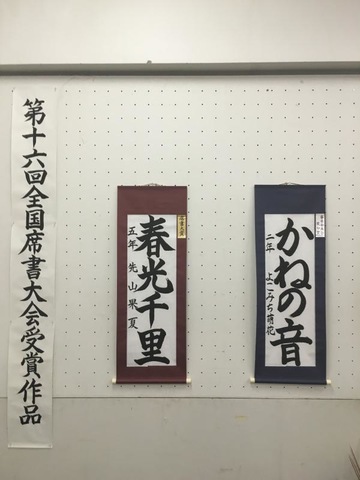 第十六回全国席書大会受賞作品
春光千里
五年 先山果夏
かねの音
二年 よこみち萌花